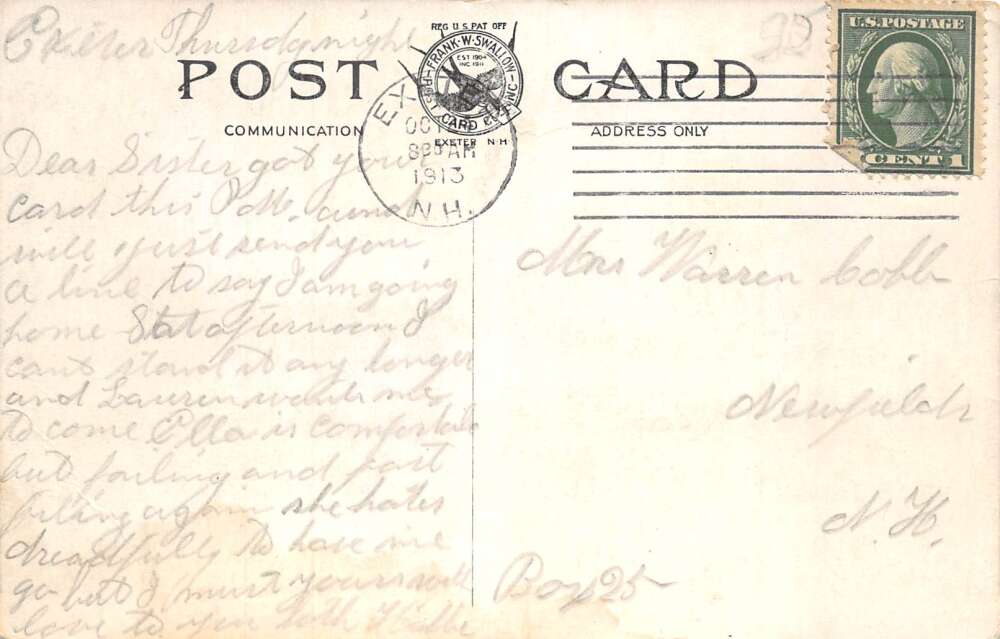 Exeter Thursday night
REG U.S. PAT OFF
FRANK·W·SWALLOW
EST 1904
INC 1911
POST CARD CO. INC
EXETER N-H
POST CARD
COMMUNICATION
ADDRESS ONLY
OCT
8 AM
1913
N.H.
U.S. POSTAGE
CENT 1
Dear Sister got your
card this P.M. and
will just send you
a line to say I am going
home Sat afternoon I
cant stand it any longer
and Lauren wants me
to come Ella is comfortable
but failing and fast
again she hates
dreadfully to have me
go but I must yours with
love to you both
Mrs Warren Cobb
Newfields
N. H.
Box 25